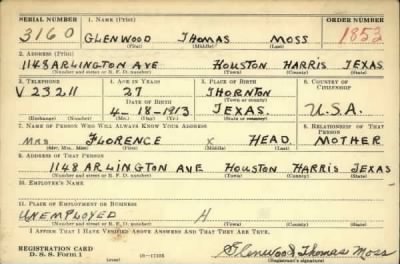 SERIAL NUMBER 1. NAME (Print) ORDER NUMBER
3160 GLENWOOD THOMAS MOSS 1852
(First) (Middle) (Last)
2. ADDRESS (Print)
1148 ARLINGTON AVE HOUSTON HARRIS TEXAS
(Number and street or R. F. D. number) (Town) (County) (State)
3. TELEPHONE 4. AGE IN YEARS 5. PLACE OF BIRTH 6. COUNTRY OF CITIZENSHIP
V 23211 27 THORNTON
DATE OF BIRTH (Town or county)
4-18-1913 TEXAS. U.S.A.
(Exchange) (Number) (Mo.) (Day) (Yr.) (State or country)
7. NAME OF PERSON WHO WILL ALWAYS KNOW YOUR ADDRESS 8. RELATIONSHIP OF THAT PERSON
MRS FLORENCE X HEAD. MOTHER
(Mr., Mrs., Miss) (First) (Middle) (Last)
9. ADDRESS OF THAT PERSON
1148 ARLINGTON AVE HOUSTON HARRIS TEXAS
(Number and street or R. F. D. number) (Town) (County) (State)
10. EMPLOYER'S NAME
11. PLACE OF EMPLOYMENT OR BUSINESS
UNEMPLOYED H
(Number and street or R. F. D. number) (Town) (County) (State)
I AFFIRM THAT I HAVE VERIFIED ABOVE ANSWERS AND THAT THEY ARE TRUE.
REGISTRATION CARD Glenwood Thomas Moss
D. S. S. Form 1 (over) (Registrant's signature)